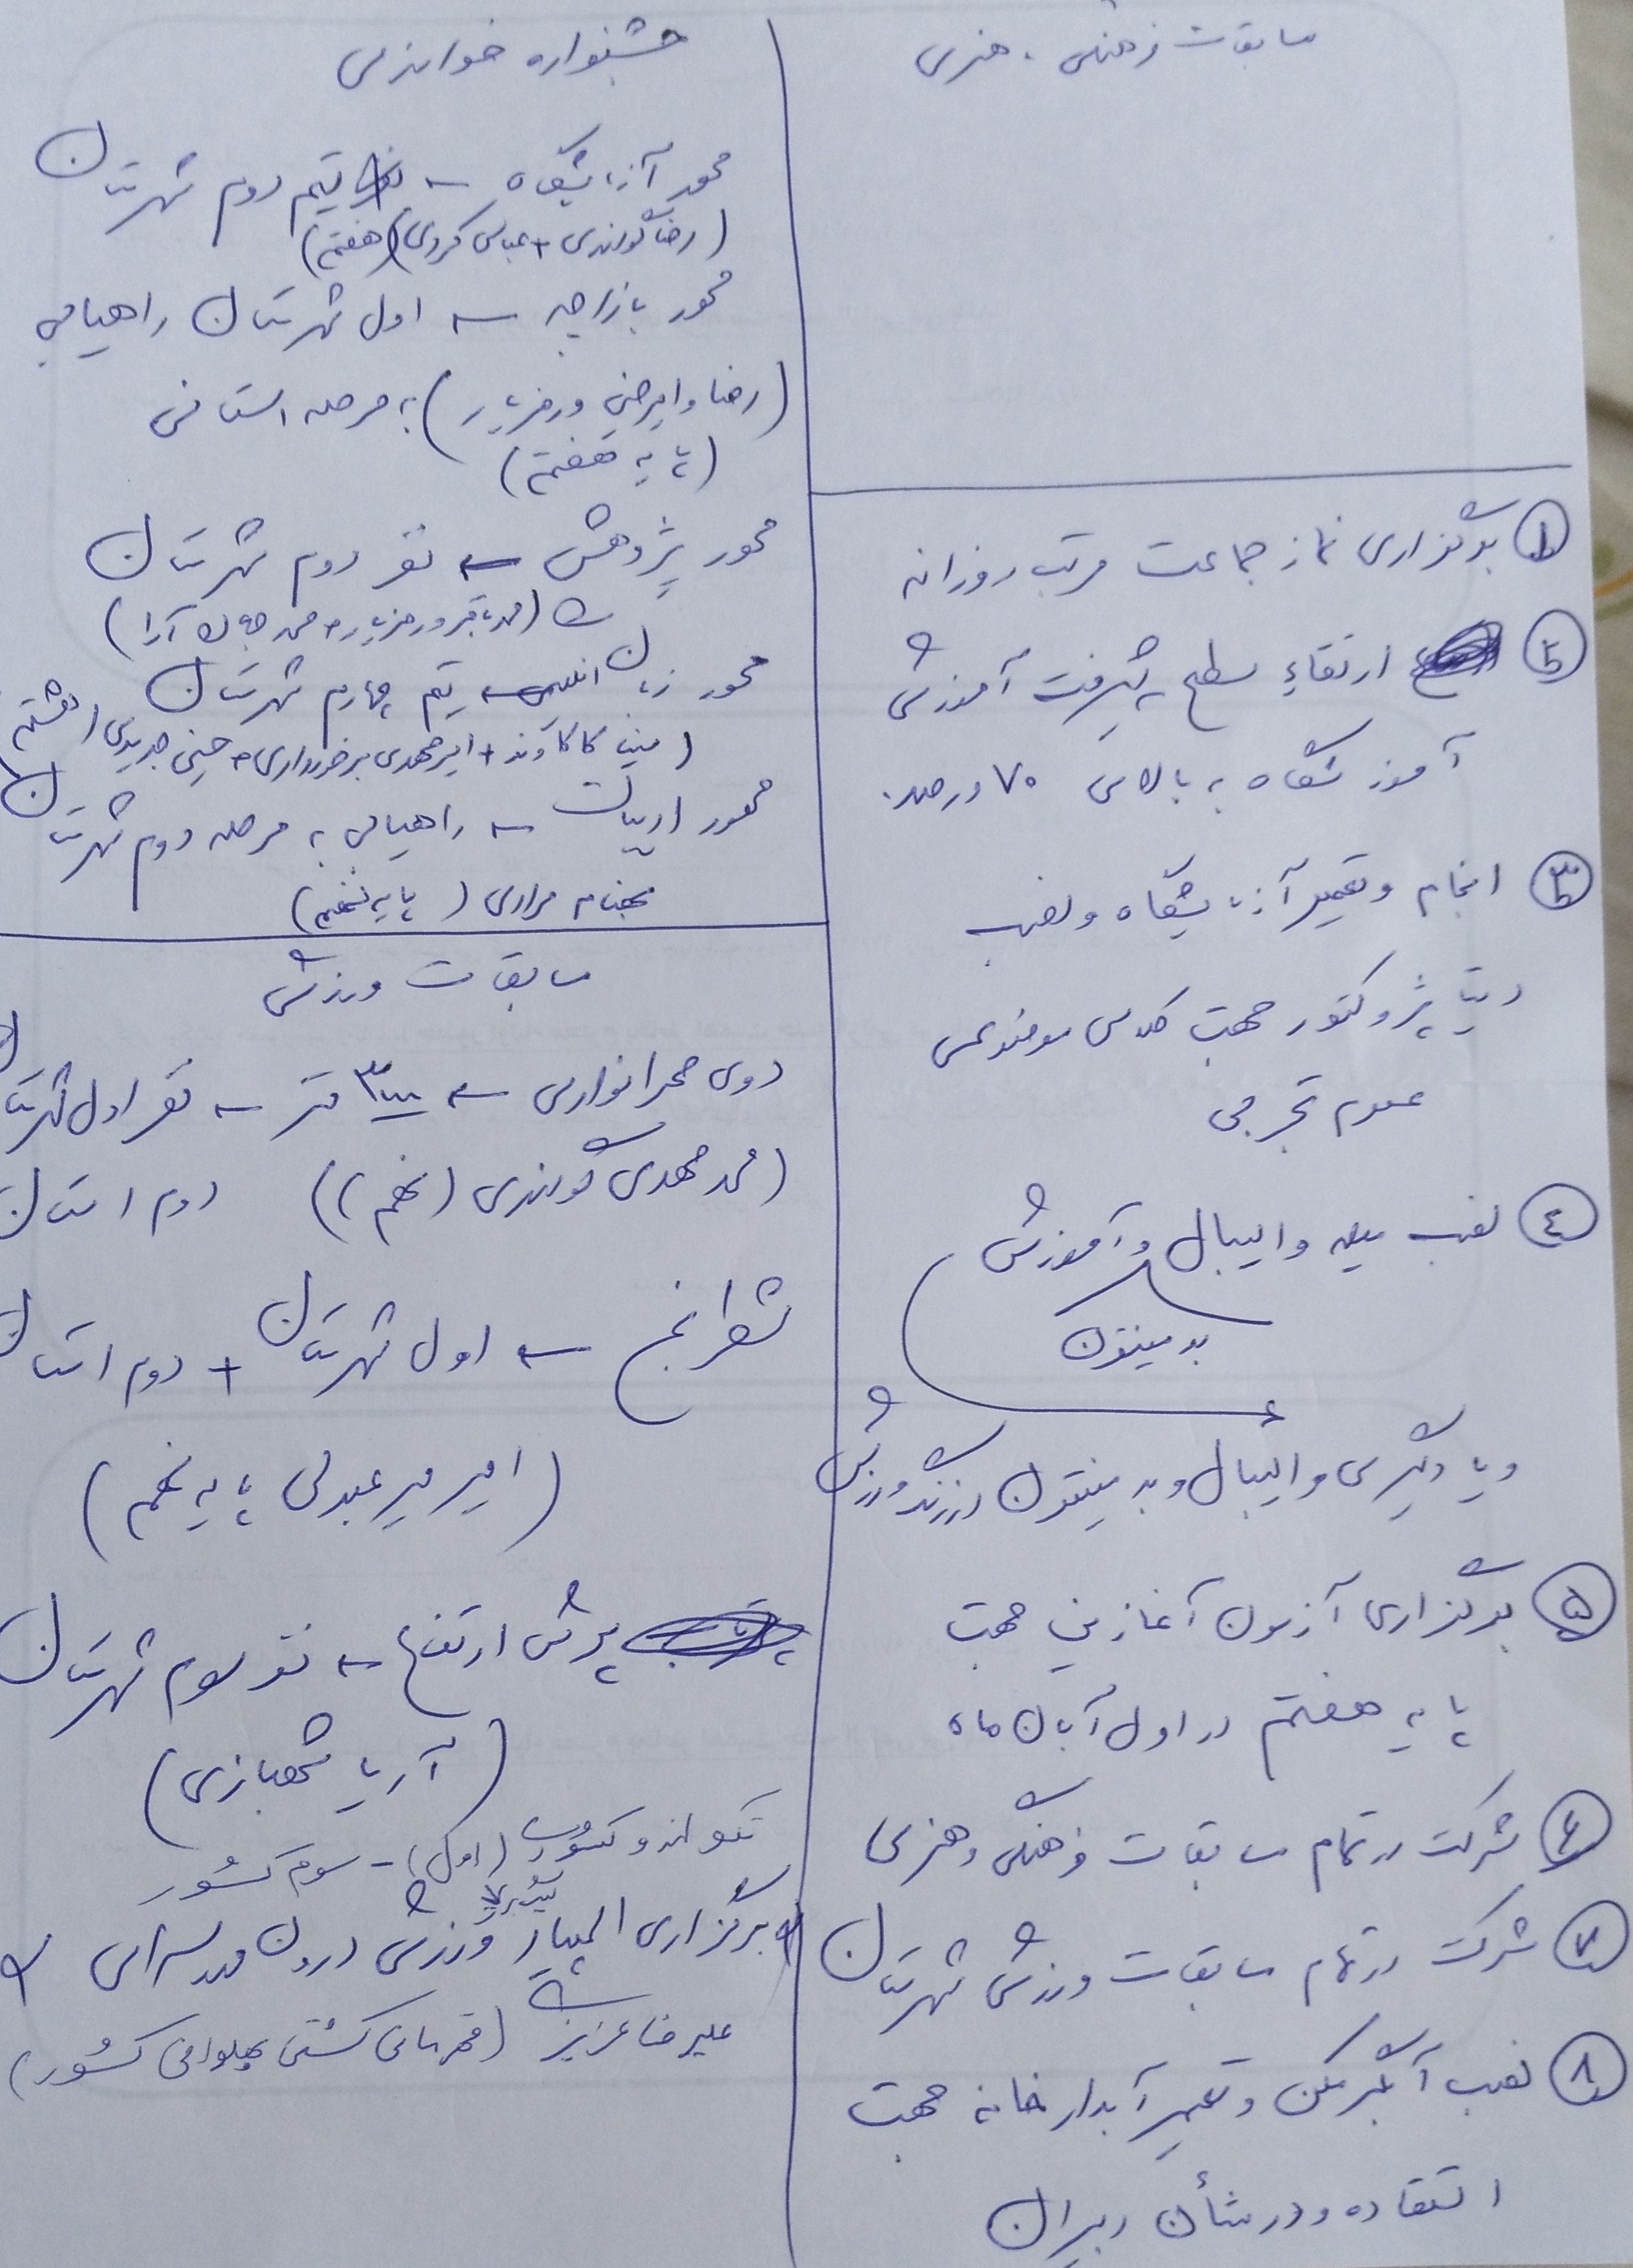 مسابقات فرهنگی، هنری
① برگزاری نماز جماعت مرتب روزانه
② ارتقاء سطح پیشرفت آموزشی
آموزشگاه به بالای ۷۰ درصد.
③ انجام و تعمیر آزمایشگاه و نصب
دیتا پروژکتور جهت کلاس هوشمند
علوم تجربی
④ نصب میله والیبال و آموزش
بدمینتون
و یادگیری والیبال و بدمینتون در زنگ ورزش
⑤ برگزاری آزمون آغازین جهت
پایه هفتم در اول آبان ماه
⑥ شرکت در تمام مسابقات فرهنگی و هنری
⑦ شرکت در تمام مسابقات ورزشی شهرستان
⑧ نصب آبگرمکن و تعمیر آبدارخانه جهت
استفاده و در شأن دبیران
جشنواره خوارزمی
محور آزمایشگاه ← تیم دوم شهرستان
(رضا گوندری + عباس کردی) (هفتم)
محور بازارچه ← اول شهرستان راهیابی
(رضا و امیرحسین ورمزیار) به مرحله استانی
(پایه هفتم)
محور پژوهش ← نفر دوم شهرستان
(محمدباقر ورمزیار + محمد جهان آرا)
محور زبان انگلیسی ← تیم چهارم شهرستان
(کاکاوند + امیرمهدی برخورداری + حسینی) (هشتم)
محور ادبیات ← راهیابی به مرحله دوم شهرستان
بهنام مرادی (پایه نهم)
مسابقات ورزشی
دوی صحرانوردی ← ۳۰۰۰ متر ← نفر اول شهرستان
(محمد مهدی گوندری (نهم)) دوم استان
شطرنج ← اول شهرستان + دوم استان
(امیر میرعبدلی پایه نهم)
پرش ارتفاع ← نفر سوم شهرستان
(آریا شهبازی)
تکواندو کشوری (اول) - سوم کشور
برگزاری المپیاد ورزشی درون مدرسه‌ای
علیرضا عزیزی (قهرمانی کشتی پهلوانی کشور)